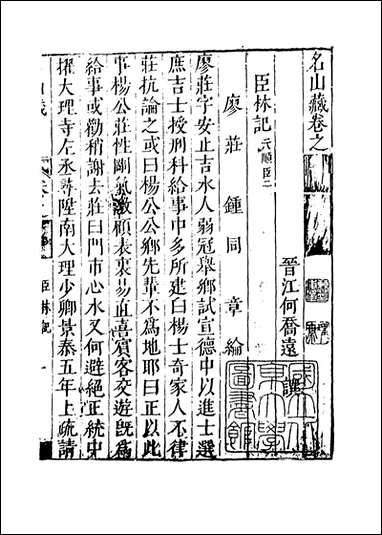 名山藏卷之
晉江何喬遠譔
臣林記 天順臣二
廖莊 鍾同 章綸
廖莊字安止吉水人弱冠舉鄉試宣德中以進士選
庶吉士授刑科給事中多所建白楊士奇家人不律
莊抗論之或曰楊公公鄉先輩不爲地耶曰正以此
事楊公莊性剛氣激頗表裏易直喜賓客交遊旣爲
給事或勸稍謝去莊曰門市心水又何避絕正統中
擢大理寺左丞尋陞南大理少卿景泰五年上疏請
臣林記
一